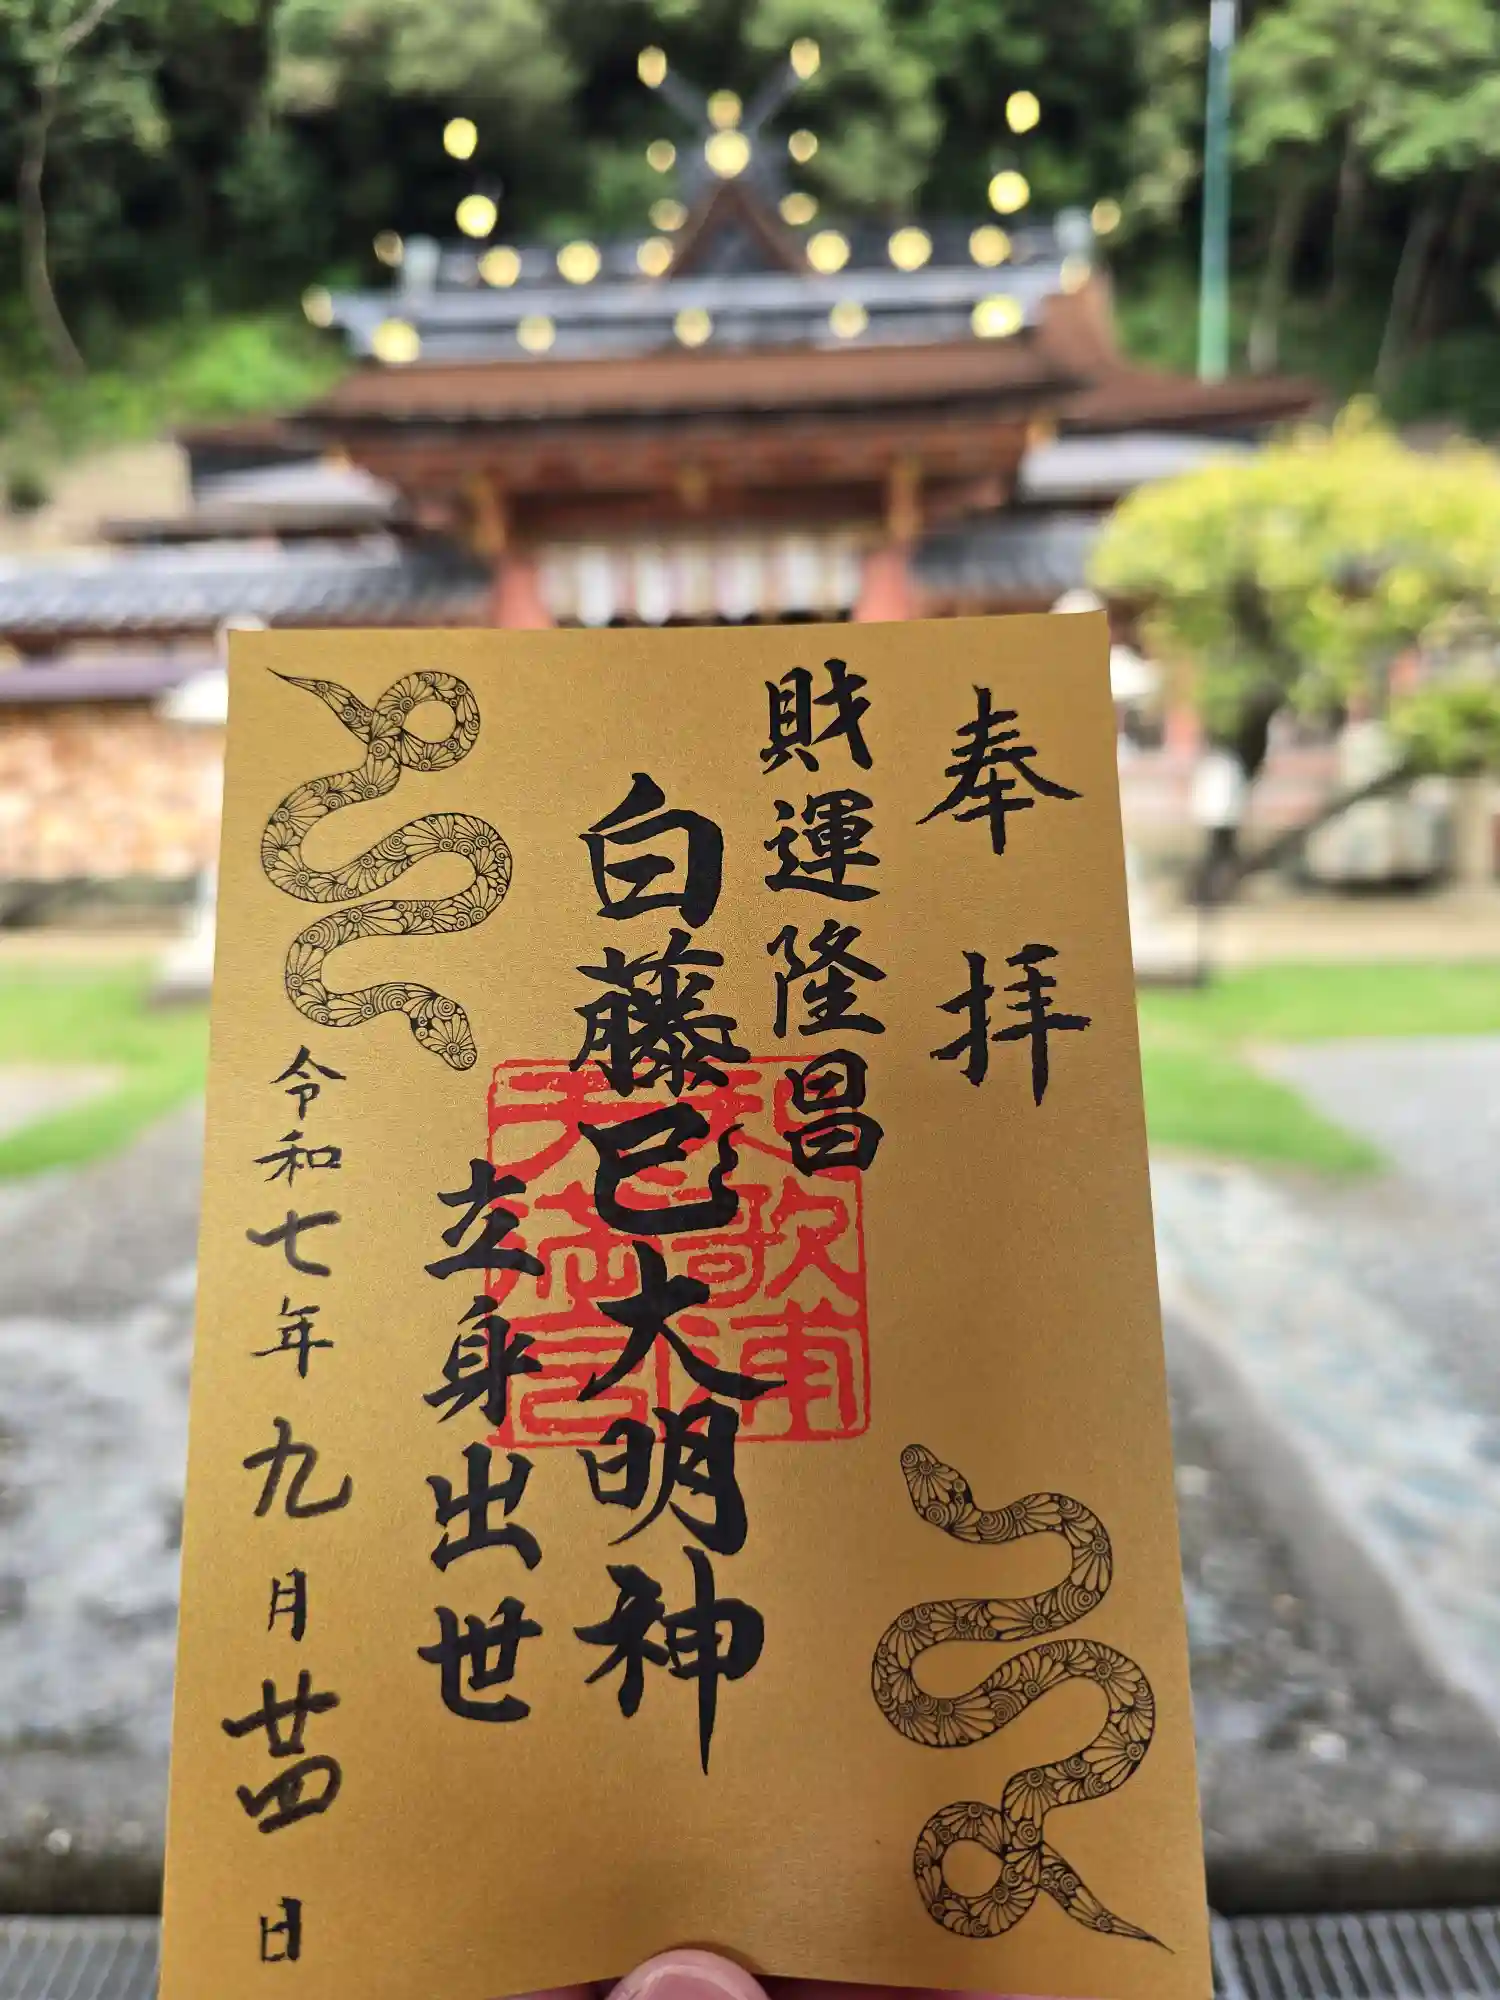 奉拝
財運隆昌
白藤巳大明神
立身出世
令和七年九月廿四日
和歌浦
天満宮